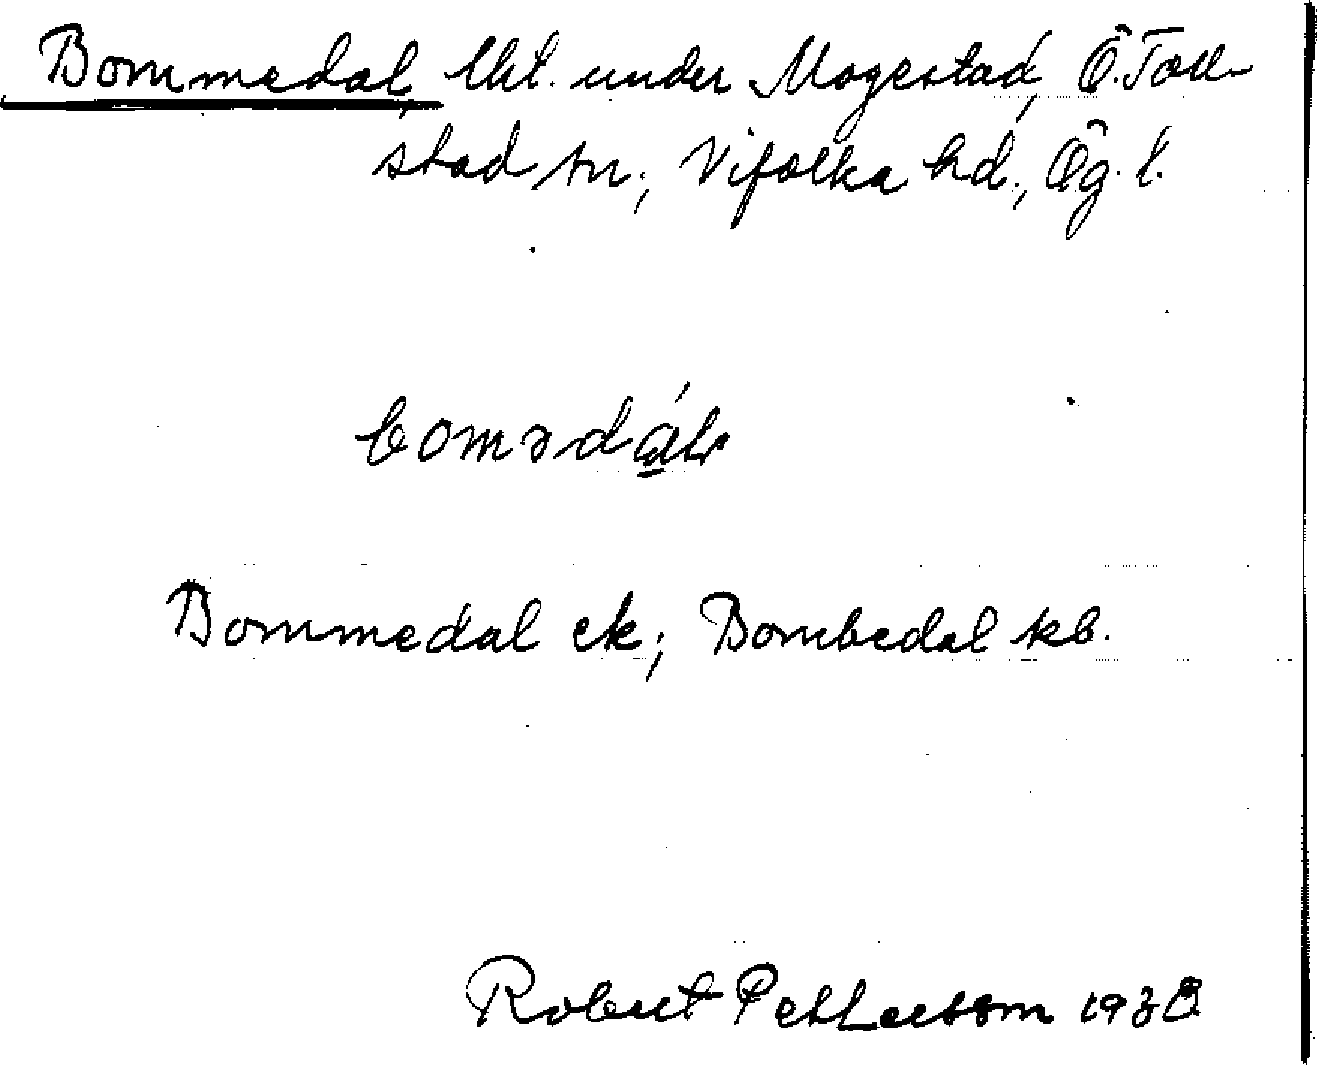 Bommedal, lht. under Mogestad, Ö. Toll-
stad sn; Vifolka hd., Ög. l.
bomədál
Bommedal ek; Bombedal kb.
Robert Pettersson 1938